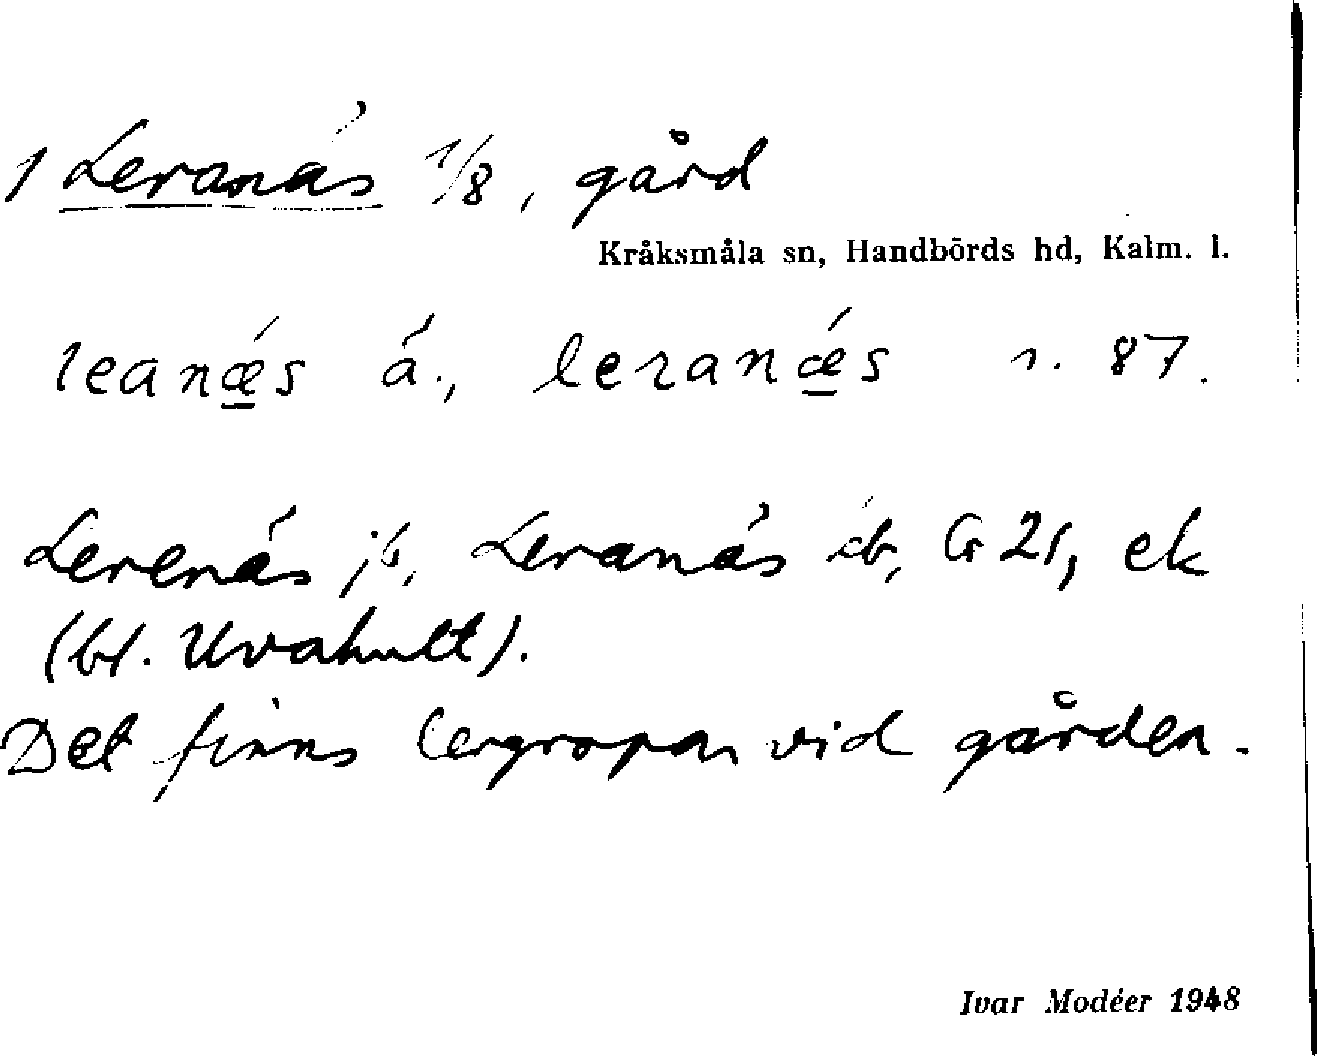 1 Leranäs 1/8, gård
Kråksmåla sn, Handbörds hd, Kalm. l.
leanǽ̲s á., leranǽ̲s r. 87.
Lerenäs jb, Leranäs äb, G 21, ek
(bl. Uvahult).
Det finns lergropar vid gården.
Ivar Modéer 1948